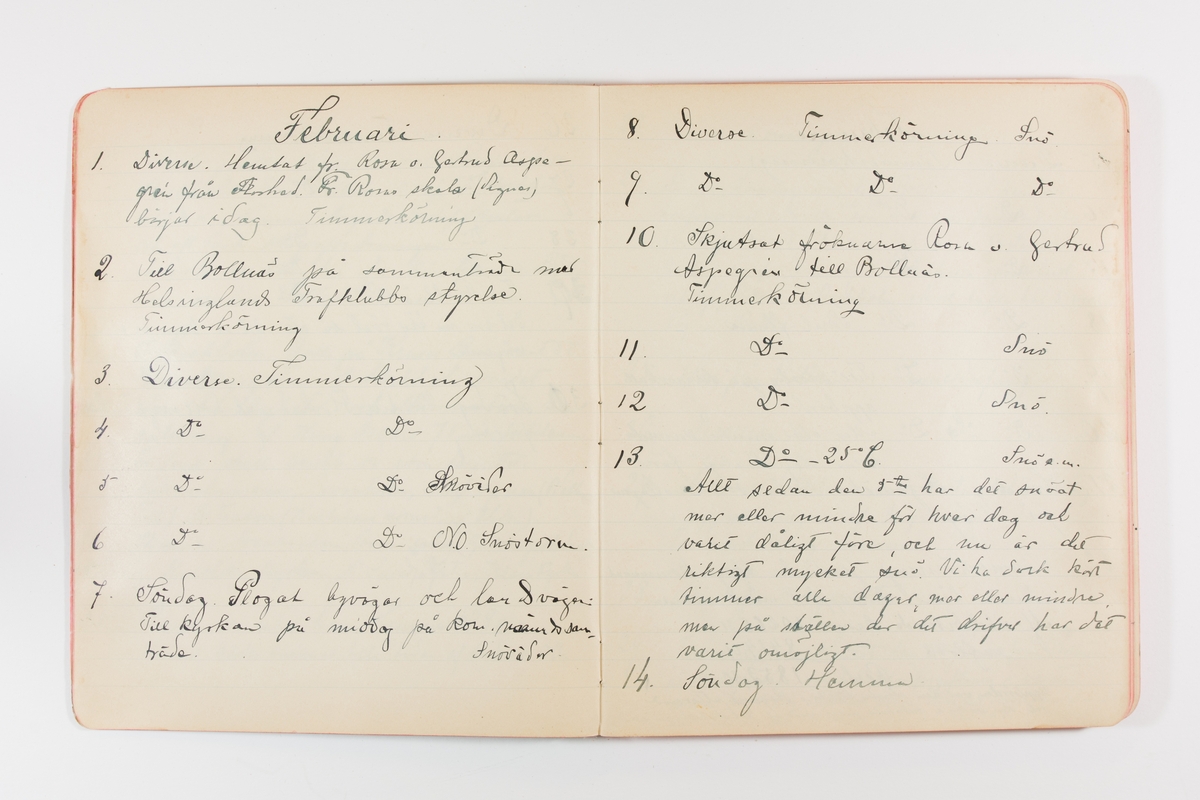 Februari.
1. Diverse. Hemtat fr. Rosa o. Gertrud Aspe-
grén från Florhed. Fr. Rosas skola (Vignas)
börjar idag. Timmerkörning
2. Till Bollnäs på sammanträde med
Helsinglands Trafklubbs styrelse.
Timmerkörning
3. Diverse. Timmerkörning
4. Do Do
5 Do Do Snöväder
6 Do Do N.O. Snöstorm.
7. Söndag. Plogat byvägar och landsvägen
Till kyrkan på middag på kom. nämndssam-
träde. Snöväder.
8. Diverse. Timmerkörning. Snö.
9. Do Do Do
10. Skjutsat fröknarna Rosa o. Gertrud
Aspegrén till Bollnäs.
Timmerkörning
11. Do Snö
12 Do Snö.
13 Do -25°C. Snö e.m.
Allt sedan den 5te har det snöat
mer eller mindre för hvar dag och
varit dåligt före, och nu är det
riktigt mycket snö. Vi ha dock kört
timmer alla dagar, mer eller mindre,
men på ställen der det drifver har det
varit omöjligt.
14. Söndag. Hemma